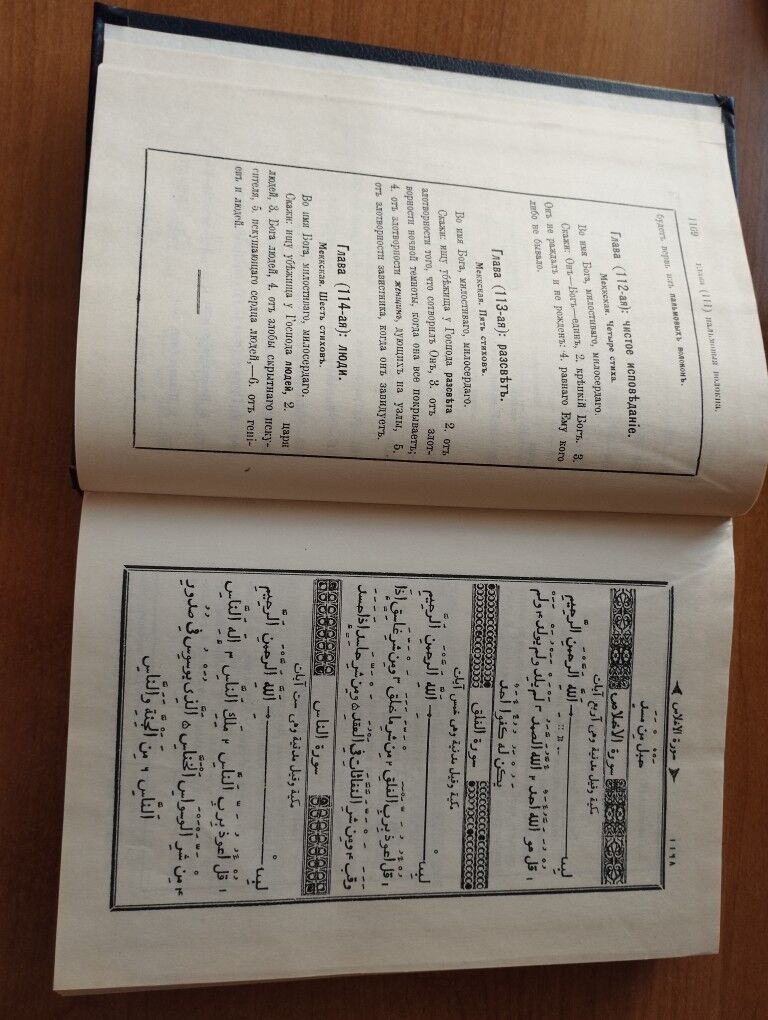 1169
Глава (111) пальмовыя волокна.
будетъ вервь изъ пальмовыхъ волоконъ.
Глава (112-ая): чистое исповѣданіе.
Меккская. Четыре стиха.
Во имя Бога, милостиваго, милосердаго.
Скажи: Онъ—Богъ—единъ, 2. крѣпкій Богъ. 3.
Онъ не раждалъ и не рожденъ: 4. равнаго Ему кого
либо не бывало.
Глава (113-ая): разсвѣтъ.
Меккская. Пять стиховъ.
Во имя Бога, милостиваго, милосердаго.
Скажи: ищу убѣжища у Господа разсвѣта 2. отъ
злотворности того, что сотворилъ Онъ, 3. отъ злот-
ворности ночной темноты, когда она все покрываетъ;
4. отъ злотворности женщинъ, дующихъ на узлы, 5.
отъ злотворности завистника, когда онъ завидуетъ.
Глава (114-ая): люди.
Меккская. Шесть стиховъ.
Во имя Бога, милостиваго, милосердаго.
Скажи: ищу убѣжища у Господа людей, 2. царя
людей, 3. Бога людей, 4. отъ злобы скрытнаго иску-
сителя, 5. искушающаго сердца людей,—6. отъ гені-
евъ и людей.
سورة الاخلاص
١١٦٨
حبل من مسد
سورة الاخلاص
مكية وقيل مدنية وهى اربع آيات
الله الرحمن الرحيم
١ قل هو الله احد ٢ الله الصمد ٣ لم يلد ولم يولد ٤ ولم
يكن له كفوا احد
سورة الفلق
مكية وقيل مدنية وهى خمس آيات
الله الرحمن الرحيم
١ قل اعوذ برب الفلق ٢ من شر ما خلق ٣ ومن شر غاسق اذا
وقب ٤ ومن شر النفاثات فى العقد ٥ ومن شر حاسد اذا حسد
سورة الناس
مكية وقيل مدنية وهى ست آيات
الله الرحمن الرحيم
١ قل اعوذ برب الناس ٢ ملك الناس ٣ اله الناس
٤ من شر الوسواس الخناس ٥ الذى يوسوس فى صدور
الناس ٦ من الجنة والناس